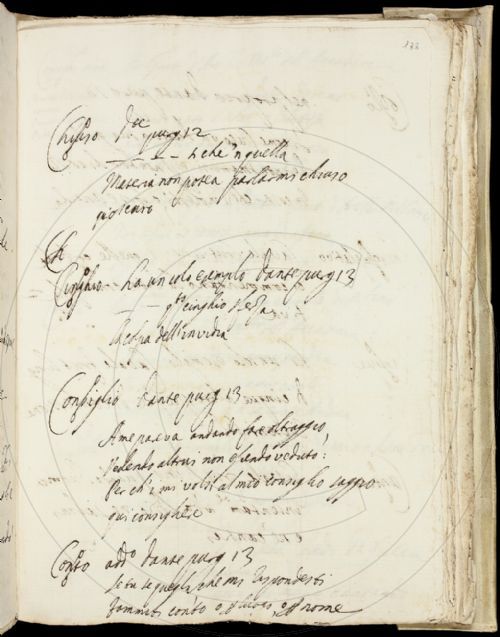 172
Chiuso Dce purg 12
– – – sì che 'n quella
Materia non potea parlarmi chiuso
Cinghio ha un solo esemplo Dante purg 13
– – – qto cinghio sferza
la colpa dell'invidia
Consiglio Dante purg 13
A me pareva andando fare oltraggio,
Vedendo altrui non essendo veduto:
Perch'i mi volsi al mio consiglio saggio
qui consigliere
Conto addo Dante purg 13
Se tu se' quelli che mi rispondesti
fammiti conto o per luogo o per nome